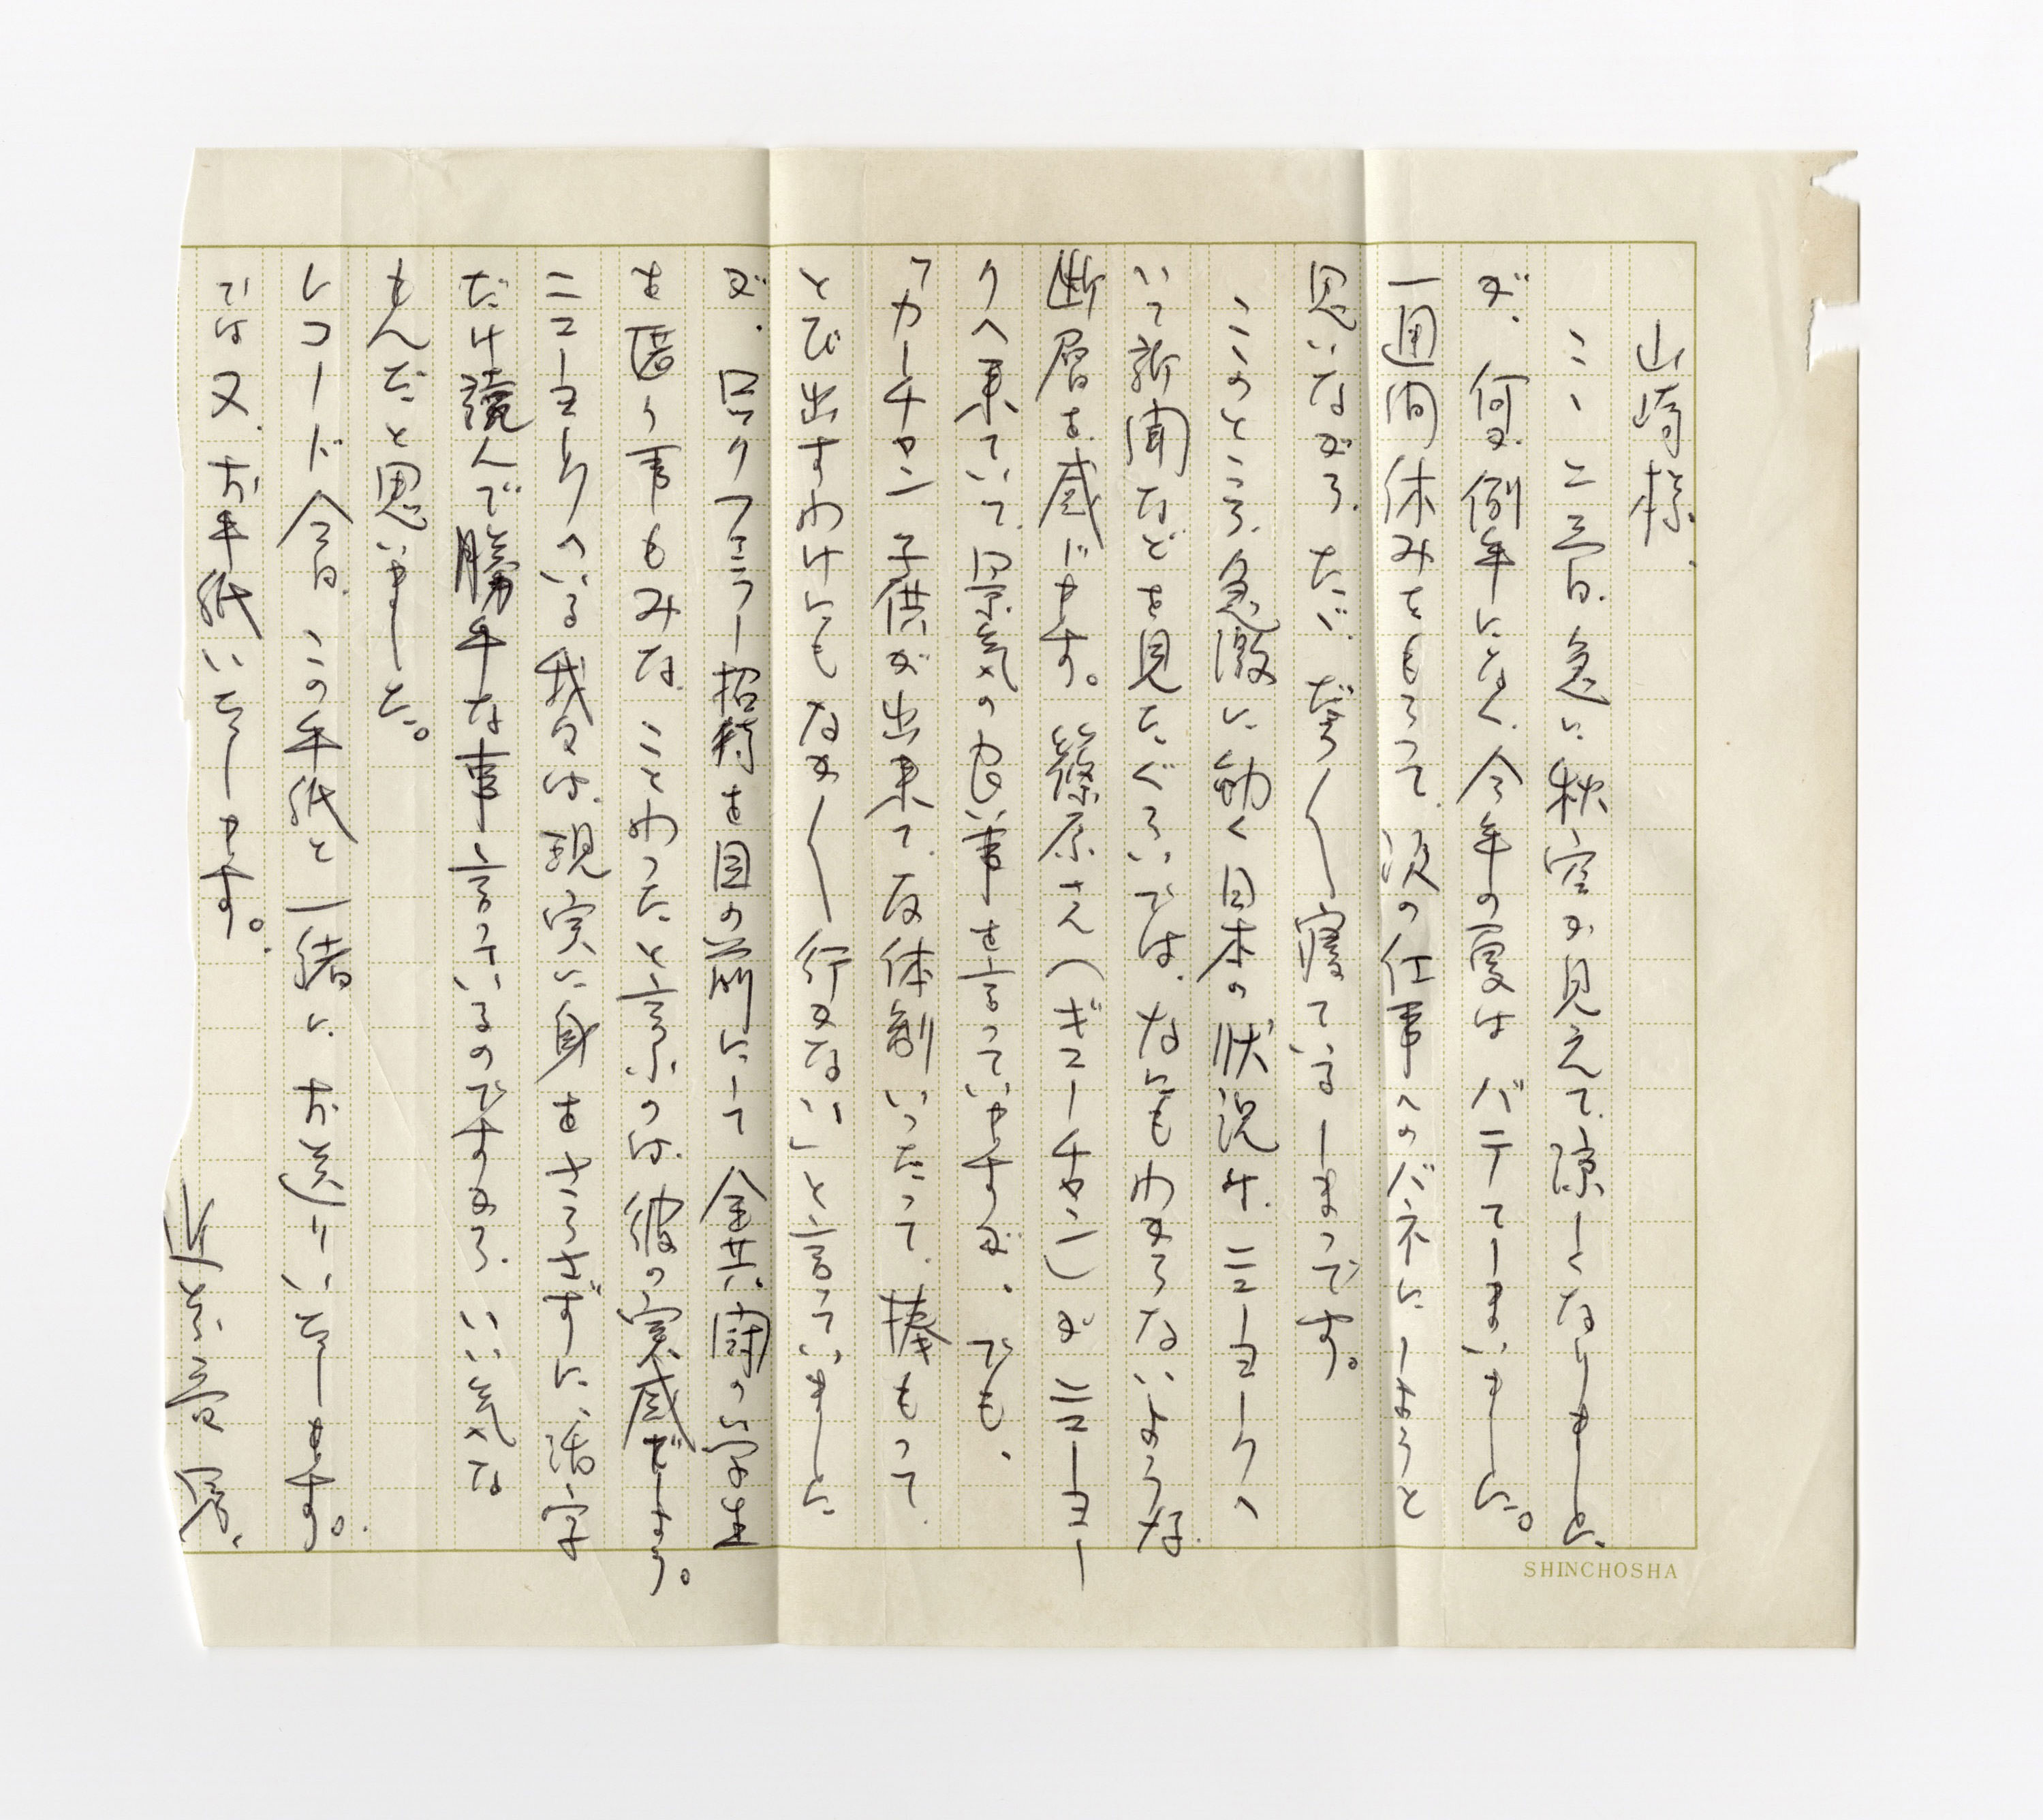 山崎様.
ここ二三日.急に秋空が見えて.涼しくなりましたが、
が.何か例年になく.今年の夏はバテてしまいました。
一週間休みをもらって.次の仕事へのバネにしようと
思いながら.ただ.だらだら寝ているしまつです。
このところ.急激に動く日本の状況は.ニューヨークへ
いて新聞などを見たぐらいでは.なにもわからないような.
断層を感じます。篠原さん(ギューチャン)がニューヨー
クへ来ていて.景気の良い事を言っていますが.でも.
「カーチャン子供が出来て.反体制いったって.棒もって.
とび出すわけにもなかなか行かない」と言っていました
が.ロックフェラー招待を目の前にして全共闘の学生
を匿う事もみな.ことわったと言うのは.彼の実感でしょう。
ニューヨークへいる我々は.現実に身をさらさずに.活字
だけ読んで勝手な事言っているのですから.いい気な
もんだと思いました。
レコード今日.この手紙と一緒に.お送りいたします。
では又.お手紙いたします。
SHINCHOSHA